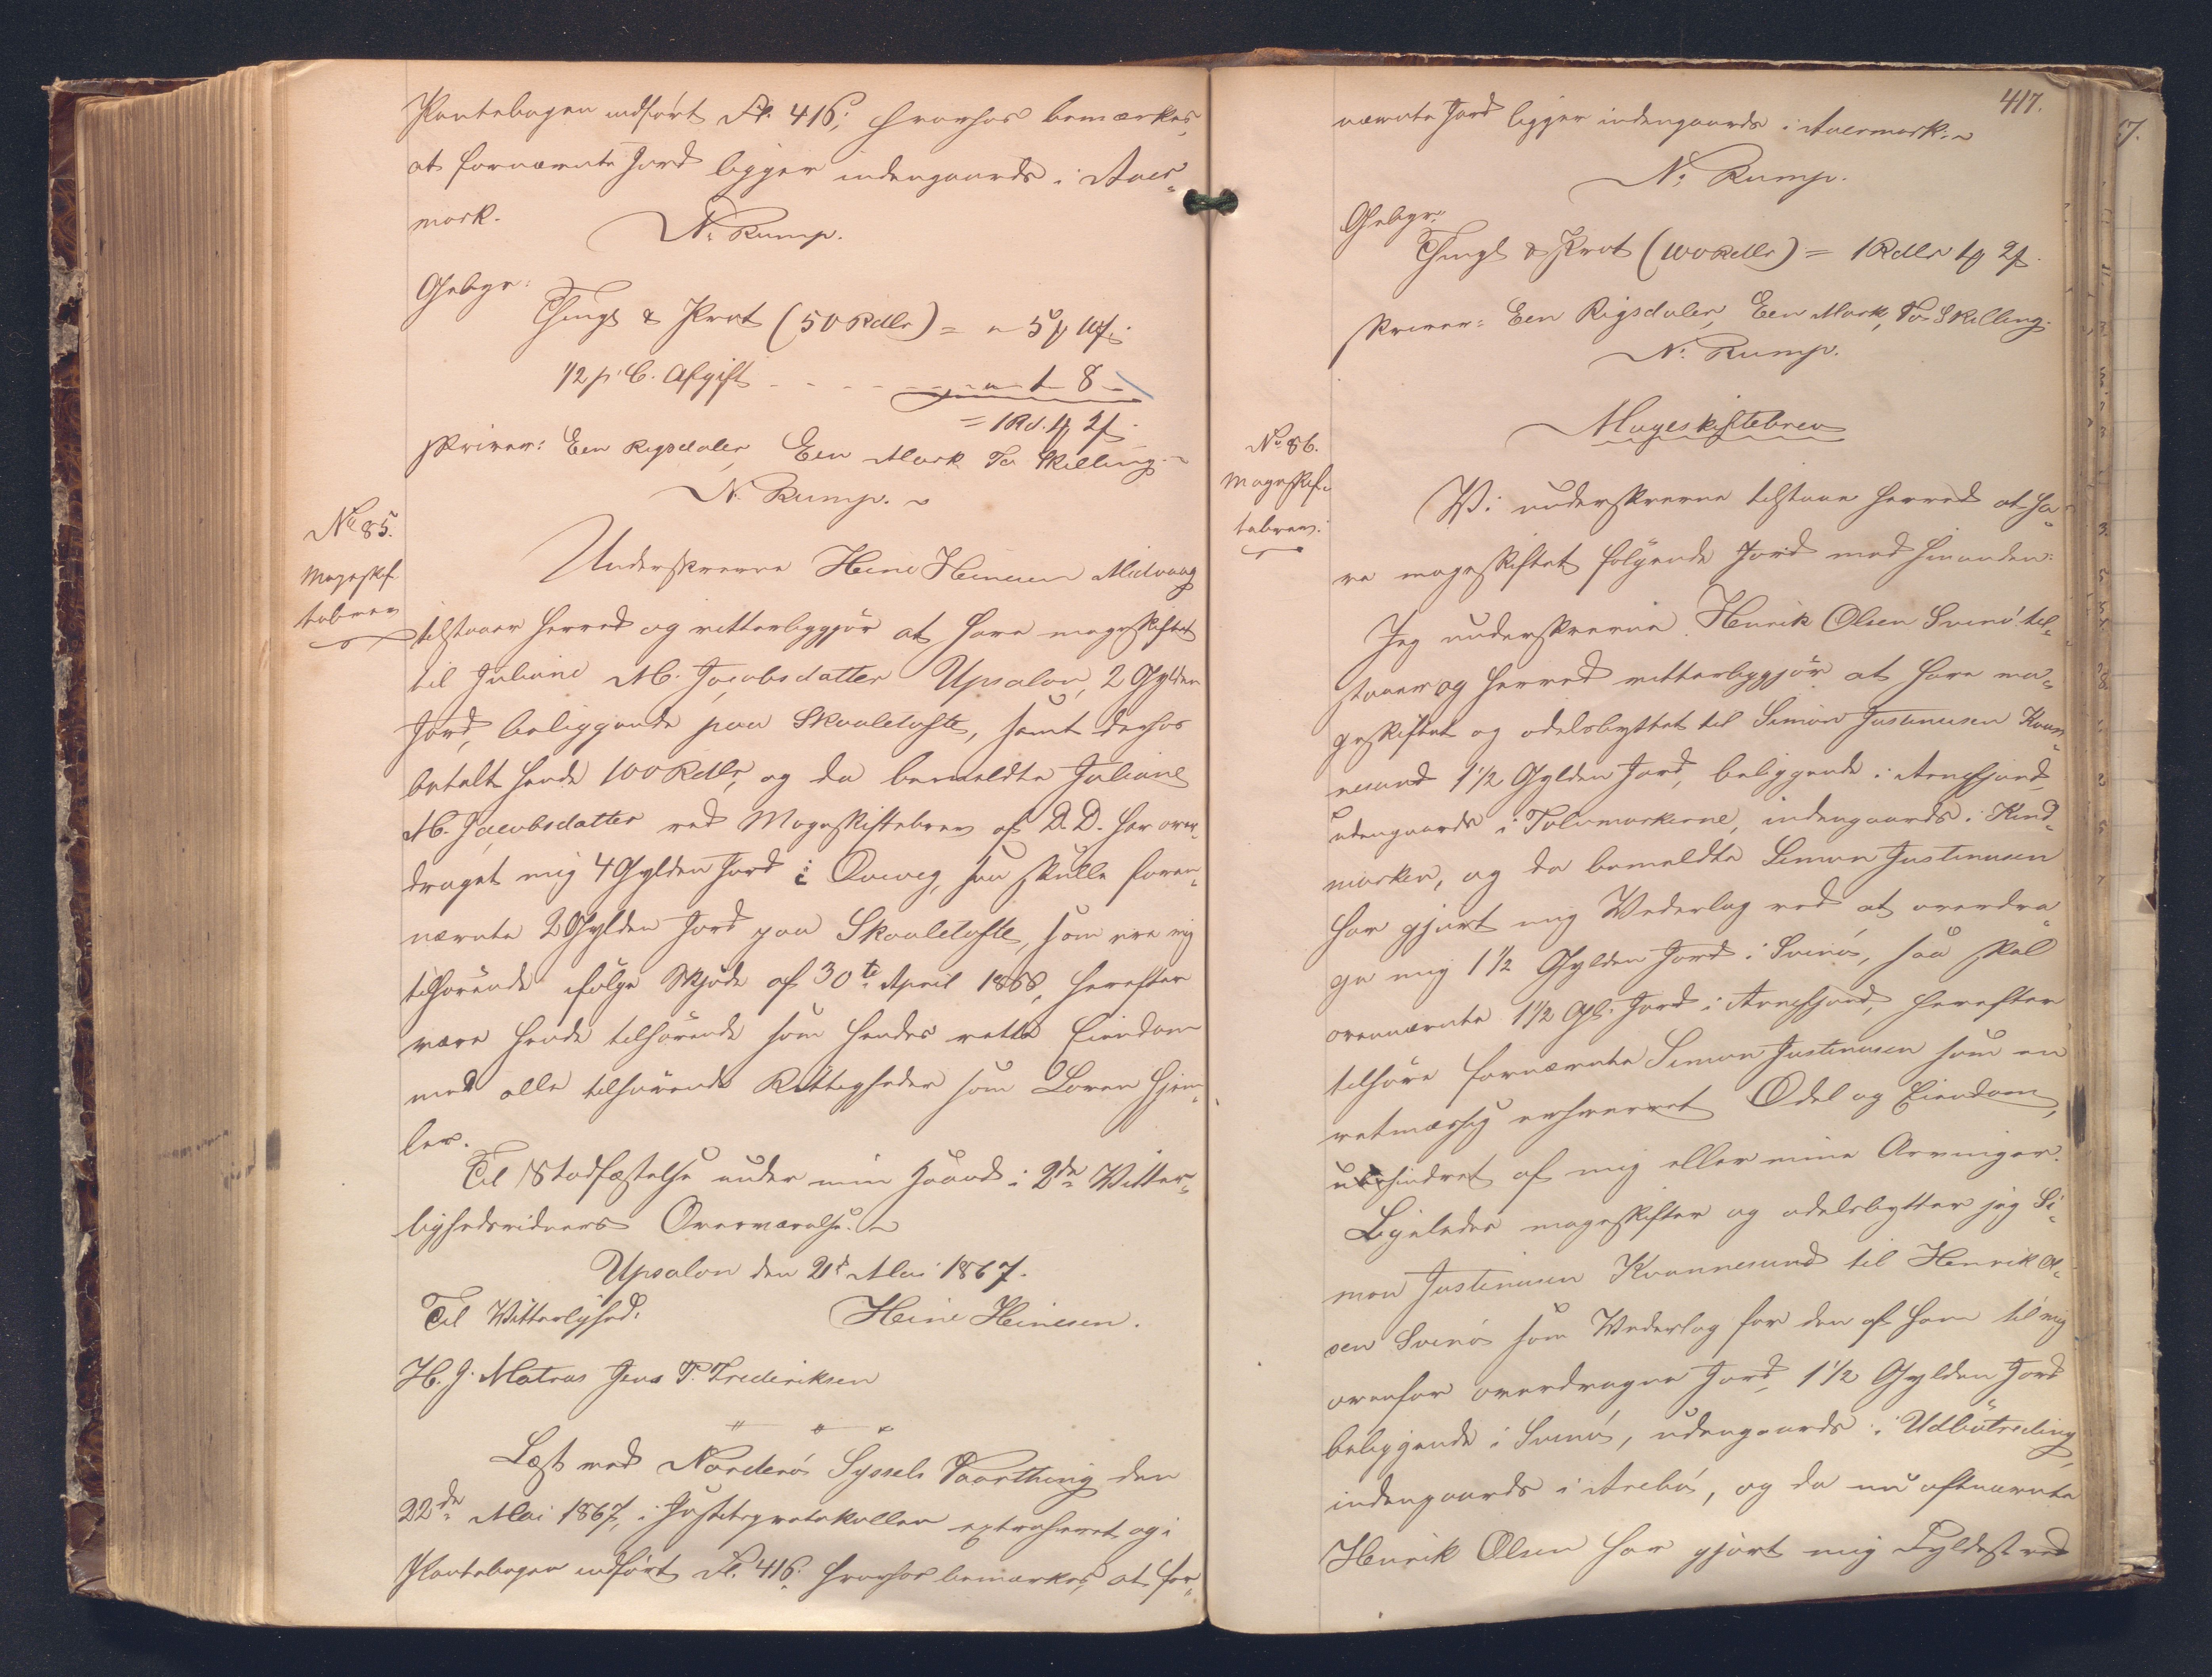 Pantebogen indført Fl. 416; hvorhos bemærkes,
at fornævnte Jord ligger indengaards i Aaer-
mark.
N. Rump.
Gebyr:
Thingl & Prot (50 Rdlr) = " 5 $ 10 f.
1/2 p. C. Afgift - - - - " 1 - 8 -
= 1 Rd. 1 $ 2 f.
skriver: Een Rigsdaler, Een Mark To Skilling.
N. Rump.
No 85.
Mageskif-
tebrev
Underskrevne Heine Heinesen Midvaag
tilstaaer herved og vitterliggjør at have mageskiftet
til Juliane M. Jacobsdatter Upsalon, 2 Gylden
Jord, beliggende paa Skaaletofte, samt derhos
betalt hende 100 Rdlr, og da bemeldte Juliane
M. Jacobsdatter ved Mageskiftebrev af D.D. har over-
draget mig 4 Gylden Jord i Qvivig, saa skulle foran-
nævnte 2 Gylden Jord paa Skaaletofte, som ere mig
tilhørende ifølge Skjøde af 30te April 1868, herefter
være hende tilhørende som hendes rette Eiendom
med alle tilhørende Rettigheder som Loven hjem-
ler.
Til Stadfæstelse under min Haand i 2de Vitter-
lighedsvidners Overværelse.
Upsalon den 21de Mai 1867.
Til Vitterlighed: Heine Heinesen.
H. J. Matras Jens P. Frederiksen
" " "
Læst med Norderø Syssels Vaarthing den
22de Mai 1867, i Justitsprotokollen extraheret og i
Pantebogen indført Fl. 416; hvorhos bemærkes, at for-
417.
nævnte Jord ligger indengaards i Aaermark.
N. Rump.
Gebyr:
Thingl & Prot (100 Rdlr) = 1 Rdlr 1 $ 2 f.
skriver: Een Rigsdaler, Een Mark, To Skilling.
N. Rump.
Mageskiftebrev
No 86.
Mageskif-
tebrev.
Vi underskrevne tilstaae herved at ha-
ve mageskiftet følgende Jord med hinanden:
Jeg underskrevne Henrik Olsen Svinø til-
staaer og herved vitterliggjør at have ma-
geskiftet og odelsbyttet til Simon Justinusen Kvan-
nesund 1 1/2 Gylden Jord, beliggende i Arnefjord,
udengaards i Tolvmarkerne, indengaards i Kind-
marken, og da bemeldte Simon Justinusen
har gjort mig Vederlag ved at overdra-
ge mig 1 1/2 Gylden Jord i Svinø, saa skal
ovennævnte 1 1/2 Gl. Jord i Arnefjord, herefter
tilhøre fornævnte Simon Justinusen som en
retmæssig erhvervet Odel og Eiendom,
uhindret af mig eller mine Arvinger.
Ligeledes mageskifter og odelsbytter jeg Si-
mon Justinusen Kvannesund til Henrik Ol-
sen Svinø som Vederlag for den af ham til mig
ovenfor overdragne Jord, 1 1/2 Gylden Jord
beliggende i Svinø, udengaards i Udbøtreding,
indengaards i Arebø, og da nu oftnævnte
Henrik Olsen har gjort mig Fyldest ved